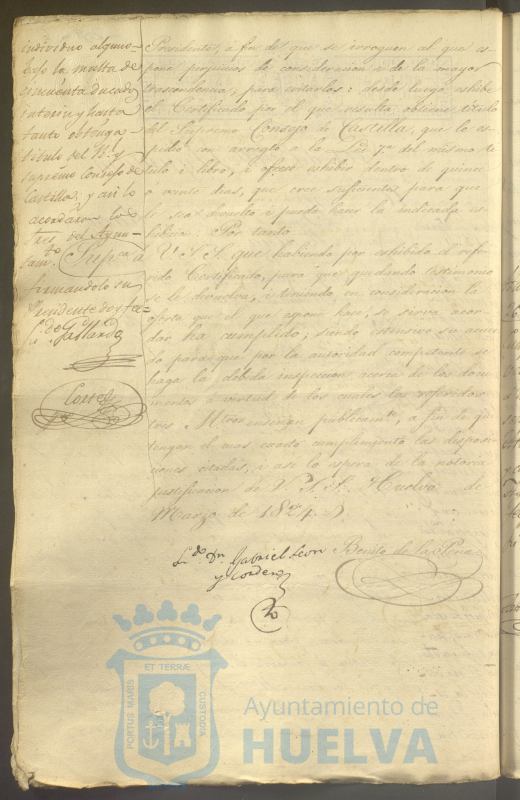 individuo alguno
bajo la multa de
cincuenta ducados
tanto obtenga
titulo del Rl. y
supremo consejo de
Castilla; y asi lo
acordaron los
Sres. del Ayun-
tamto.
firmandolo su
Presidente doy fee
Ldo. Gallardo
Cortes
Presidente, á fin de que se irroguen al que es-
pone perjuicios de consideracion i de la mayor
trascendencia, para evitarlos: desde luego exhibe
el Certificado por el que resulta obtiene titulo
del Supremo Consejo de Castilla, que lo es-
pidió con arreglo a la del mismo ti
tulo i libro, i ofrece exhibir dentro de quince
ó veinte dias, que cree suficientes para que
le sea devuelto i pueda hacer la indicada es-
hibicion Por tanto
Suplica á V.S.S. que habiendo por exhibido el refe
rido Certificado, para que quedando testimonio
se le devuelva, i teniendo en consideracion la
oferta que el que espone hace, se sirva acor-
dar ha cumplido, siendo estensivo su acuer
do para que por la autoridad competente se
haga la debida inspeccion acerca de los docu-
mentos á virtud de los cuales los referidos
tres Mtros enseñan publicamte, á fin de qe
tengan el mas exacto cumplimiento las disposi-
ciones citadas, i asi lo espera de la notoria
justificacion de V.S.S. Huelva de
Marzo de 1824.
Ldo. Dn. Gabriel Leon
y Cordero
Benito de la Peña
PORTUS MARIS
ET TERRÆ
CUSTODIA
Ayuntamiento de
HUELVA